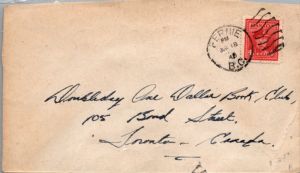 FERNIE
PM
B.C.
Doubleday One Dollar Book Club,
105 Bond Street,
Toronto - Canada